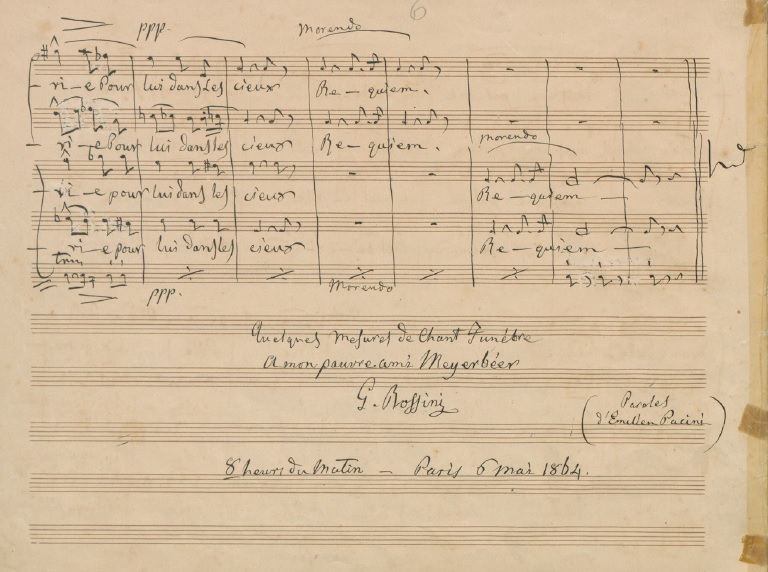 6
ppp. Morendo
ri-e Pour lui dans Les cieux Re-quiem.
ri-e Pour lui dans les cieux Re-quiem.
morendo
ri-e pour lui dans les cieux Re-quiem
ri-e pour lui dans les cieux Re-quiem
ppp. Morendo
Quelques Mesures de Chant Funèbre
A mon pauvre ami Meyerbéer
G. Rossini
Paroles
d'Emilien Pacini
8 heures du Matin — Paris 6 mai 1864.